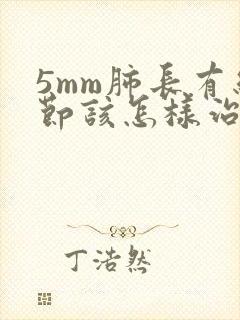 5mm肺長有
節該怎樣
丁浩然